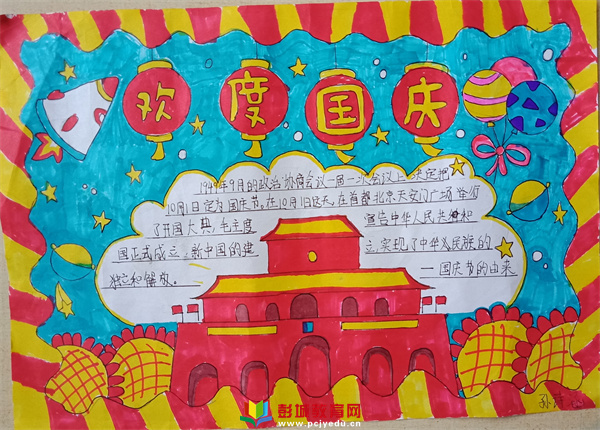 欢度国庆
1949年9月的政治协商会议一届一次会议上,决定把
10月1日定为国庆节,在10月1日这天,在首都北京天安门广场举行
了开国大典,毛主席 宣告中华人民共和
国正式成立,新中国的建立,实现了中华民族的
独立和解放。 ——国庆节的由来
孙
彭城教育网
www.pcjyedu.cn